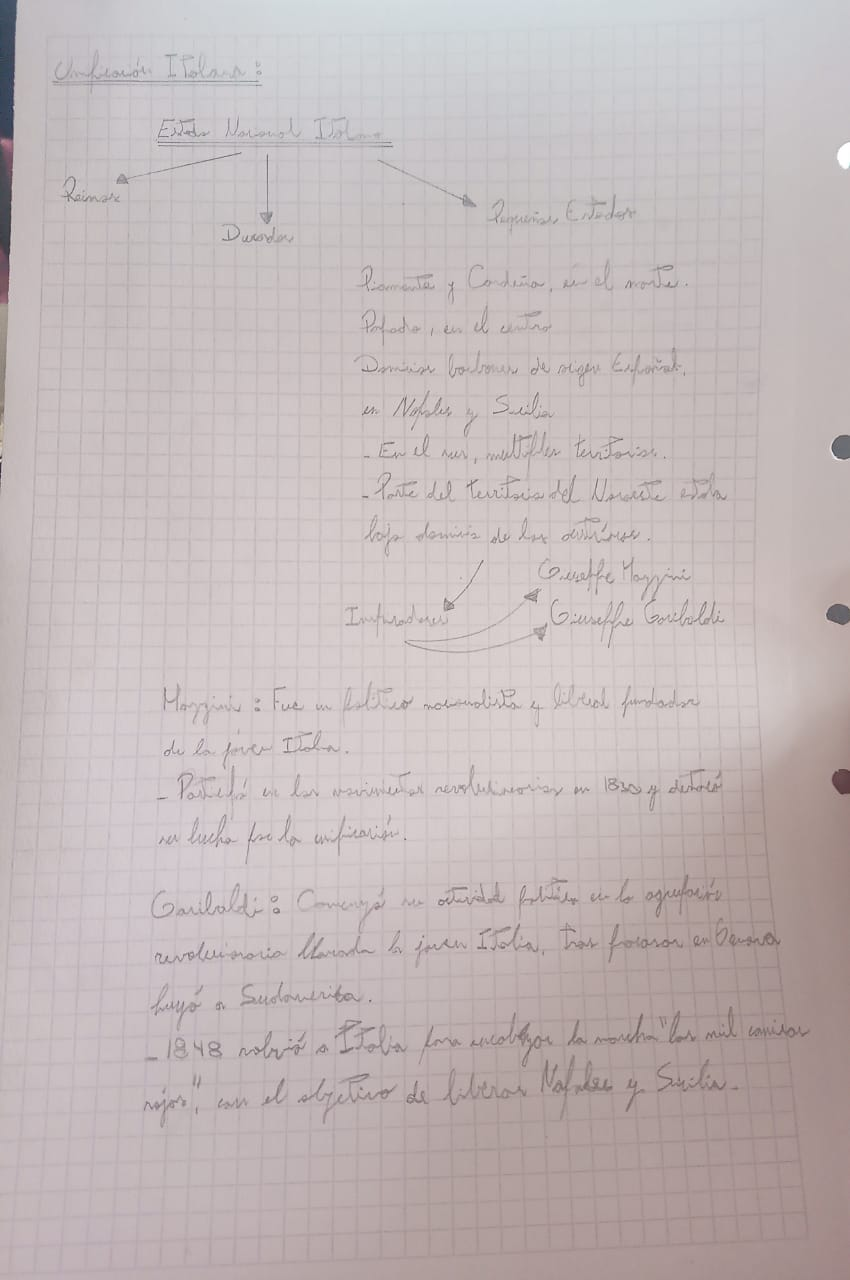 Unificación Italiana:
Estado Nacional Italiano
Reinos
Ducados
Pequeños Estados
Piamonte y Cerdeña, en el norte.
Papado, en el centro
Dominios borbones de origen Español,
en Napoles y Sicilia
- En el sur, multiples territorios.
- Parte del territorio del Noroeste estaba
bajo dominio de los austríacos.
Giuseppe Mazzini
Impulsadores
Giuseppe Garibaldi
Mazzini: Fue un político nacionalista y liberal fundador
de la jóven Italia.
- Participó en los movimientos revolucionarios en 1830 y destacó
su lucha por la unificación.
Garibaldi: Comenzó su actividad política en la agrupación
revolucionaria llamada la joven Italia, tras fracasar en Genova
huyó a Sudamerica.
- 1848 volvió a Italia para encabezar la marcha "los mil camisas
rojas", con el objetivo de liberar Napoles y Sicilia.